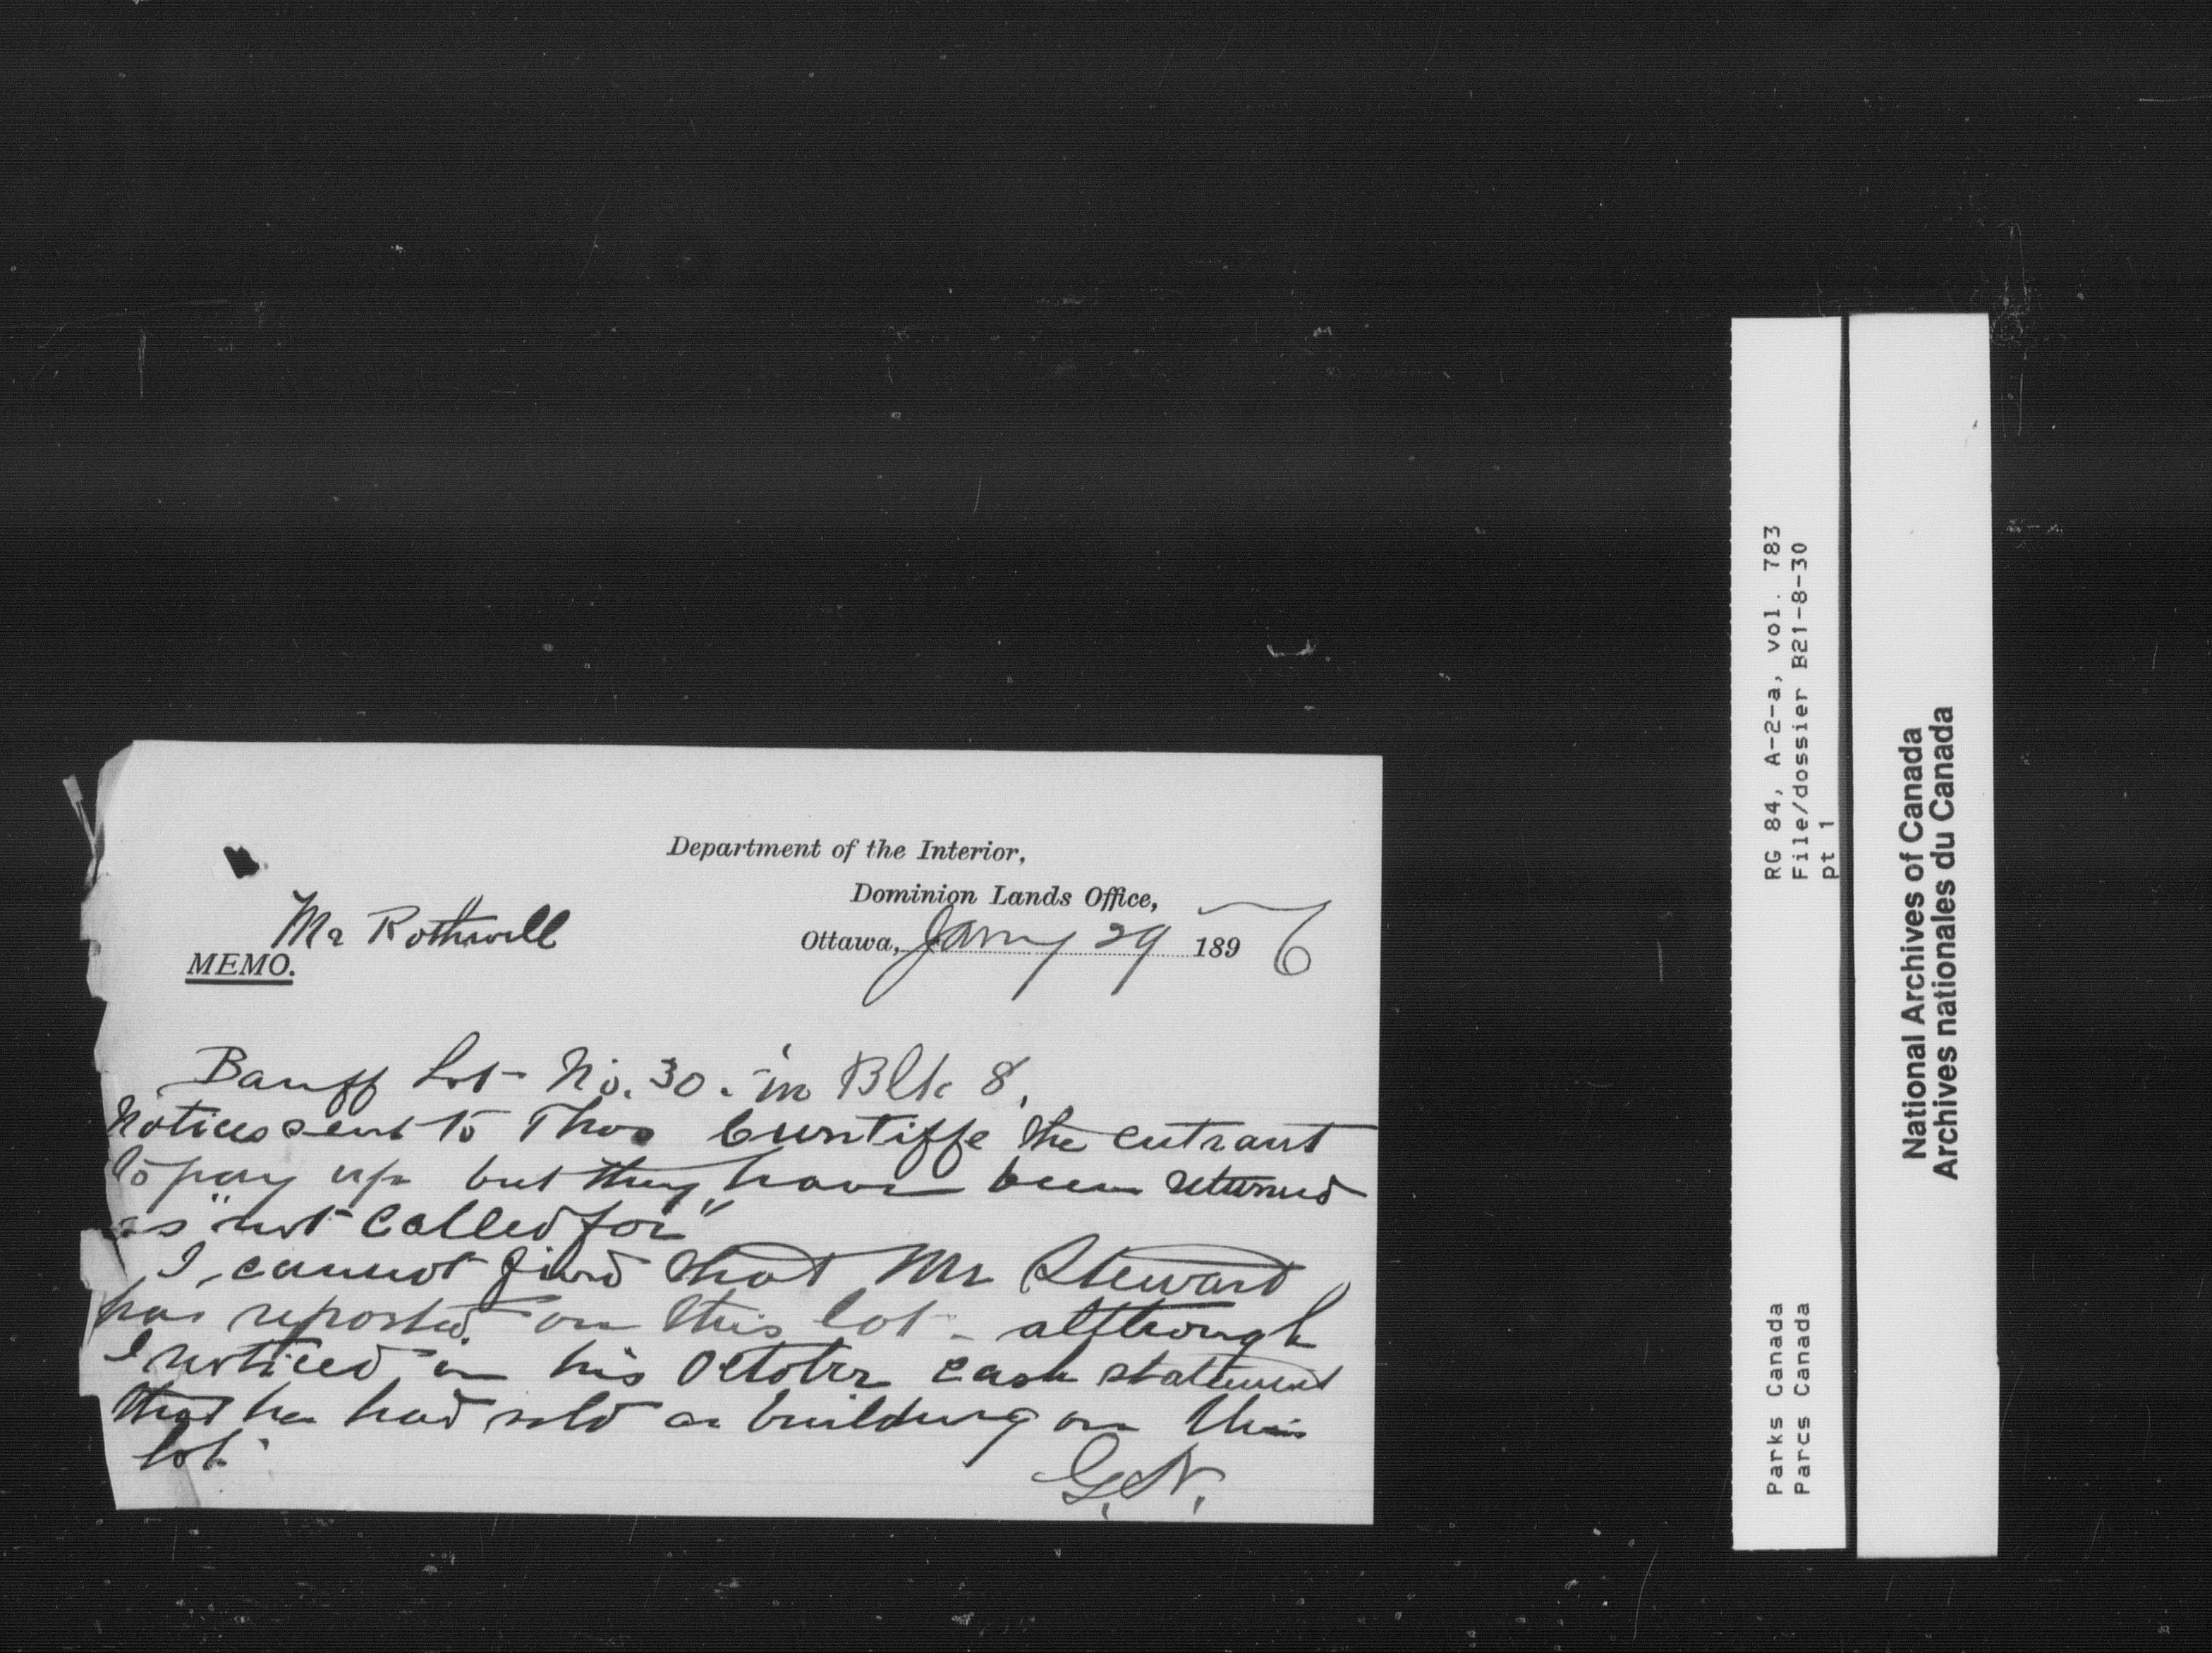 Department of the Interior,
Dominion Lands Office,
Mr Rothwell
Ottawa, Jany 29 1896
MEMO.
Banff Lot No. 30. in Blk 8.
Notices sent to Thos Cunliffe the entrant
to pay up but they have been returned
as "not called for"
I cannot find that Mr Stewart
has reported on this lot - although
I noticed in his October cash statement
that he had sold a building on this
lot.
G.N.
RG 84, A-2-a, vol. 783
File/dossier B21-8-30
pt 1
Parks Canada
Parcs Canada
National Archives of Canada
Archives nationales du Canada